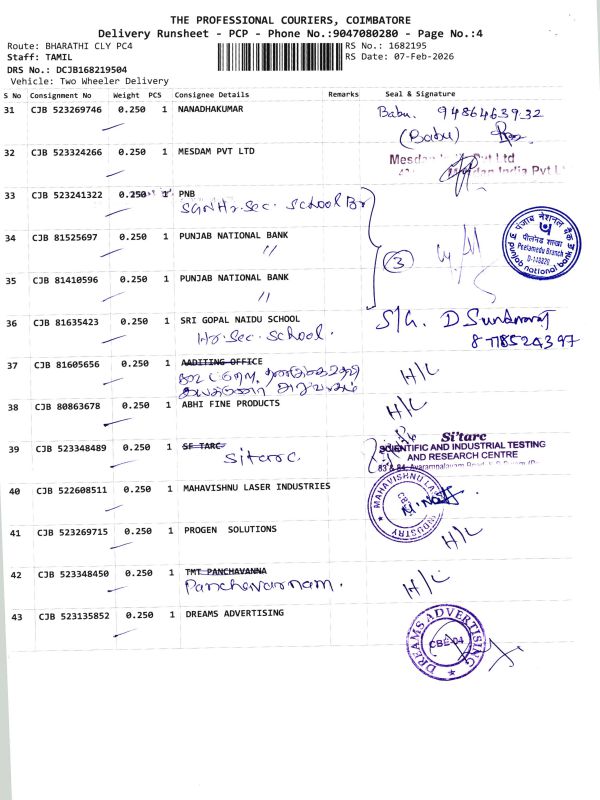 THE PROFESSIONAL COURIERS, COIMBATORE
Delivery Runsheet - PCP - Phone No.:9047080280 - Page No.:4
Route: BHARATHI CLY PC4 RS No.: 1682195
Staff: TAMIL RS Date: 07-Feb-2026
DRS No.: DCJB168219504
Vehicle: Two Wheeler Delivery
S No Consignment No Weight PCS Consignee Details Remarks Seal & Signature
31 CJB 523269746 0.250 1 NANADHAKUMAR Babu. 9486463932
(Babu)
32 CJB 523324266 0.250 1 MESDAM PVT LTD
Pvt Ltd
India Pvt L
33 CJB 523241322 0.250 1 PNB
SGN Hr. Sec. School Br
34 CJB 81525697 0.250 1 PUNJAB NATIONAL BANK
"
3
पंजाब नैशनल बैंक
पीलमेडु शाखा
Peelamedu Branch
punjab national bank
35 CJB 81410596 0.250 1 PUNJAB NATIONAL BANK
"
36 CJB 81635423 0.250 1 SRI GOPAL NAIDU SCHOOL S/G. D Sundararaj
Hr. Sec. School. 8778524397
37 CJB 81605656 0.250 1 AADITING OFFICE H/L
38 CJB 80863678 0.250 1 ABHI FINE PRODUCTS H/L
39 CJB 523348489 0.250 1 SF TARC
Sitarc
Si'tarc
SCIENTIFIC AND INDUSTRIAL TESTING
AND RESEARCH CENTRE
83 & 84, Avarampalayam Road
40 CJB 522608511 0.250 1 MAHAVISHNU LASER INDUSTRIES
MAHAVISHNU LASER INDUSTRY
41 CJB 523269715 0.250 1 PROGEN SOLUTIONS H/L
42 CJB 523348450 0.250 1 TMT PANCHAVANNA H/L
Panchavarnam.
43 CJB 523135852 0.250 1 DREAMS ADVERTISING
DREAMS ADVERTISING
CBE-04